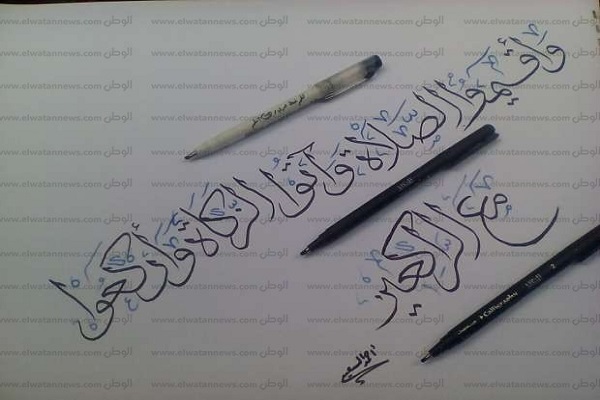 وأقيموا الصلاة وآتوا الزكاة وأركعوا
مع الراكعين
www.elwatannews.com الوطن